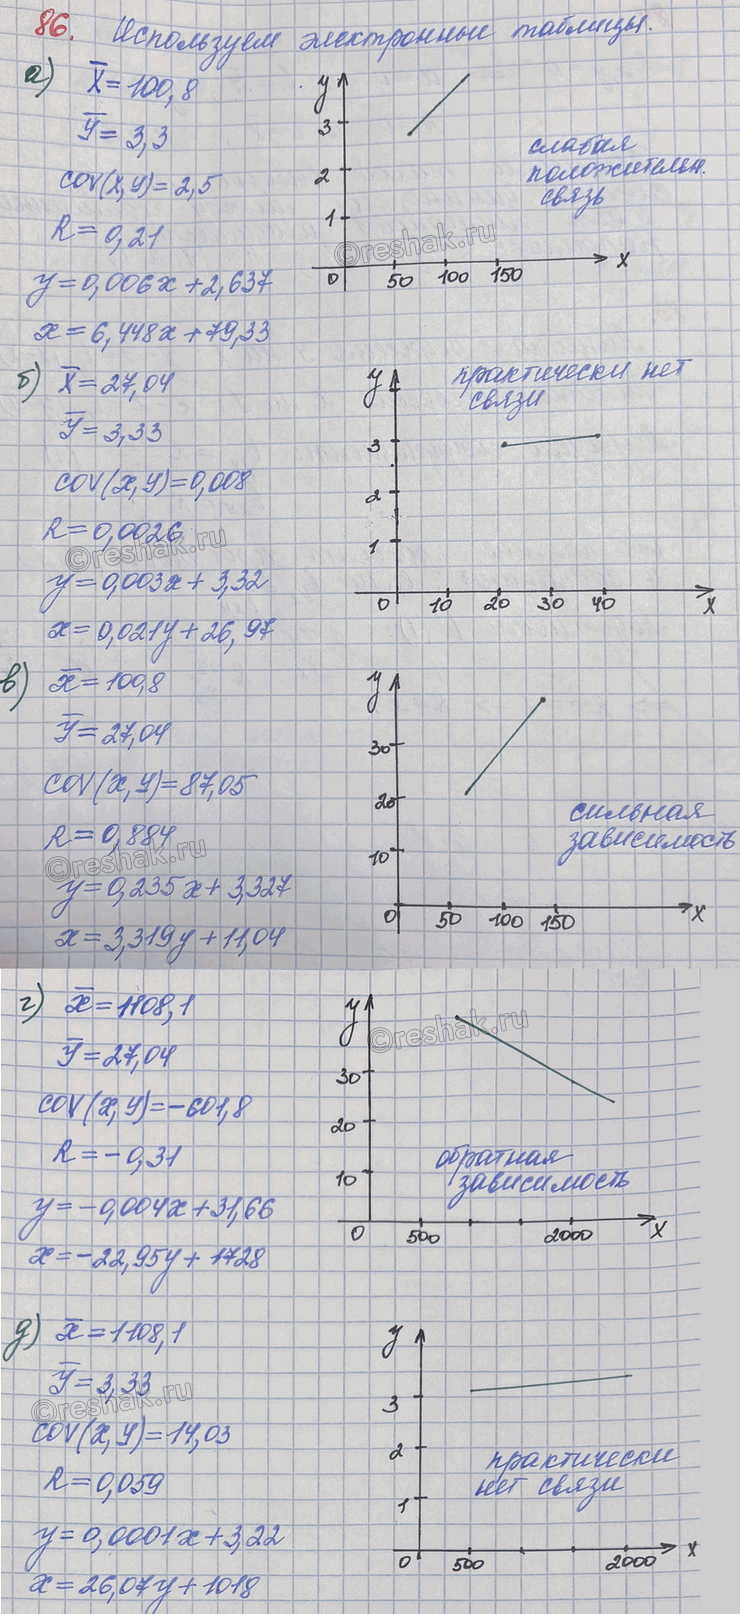 86. Используем электронные таблицы.
а) x̅=100,8
y̅=3,3
cov(x,y)=2,5
R=0,21
y=0,006x+2,637
x=6,448x+79,33
y
3
2
1
0
50 100 150
x
слабая
положительн.
связь
©reshak.ru
б) x̅=27,04
y̅=3,33
cov(x,y)=0,008
R=0,0026
y=0,003x+3,32
x=0,021y+26,97
©reshak.ru
y
3
2
1
0
10 20 30 40
x
практически нет
связи
в) x̅=100,8
y̅=27,04
cov(x,y)=87,05
R=0,884
y=0,235x+3,327
x=3,319y+11,04
©reshak.ru
y
30
20
10
0
50 100 150
x
сильная
зависимость
г) x̅=1108,1
y̅=27,04
cov(x,y)=-601,8
R=-0,31
y=-0,004x+31,66
x=-22,95y+1728
y
30
20
10
0
500 2000
x
©reshak.ru
обратная
зависимость
д) x̅=1108,1
y̅=3,33
cov(x,y)=14,03
R=0,059
y=0,0001x+3,22
x=26,07y+1018
©reshak.ru
y
3
2
1
0
500 2000
x
практически
нет связи